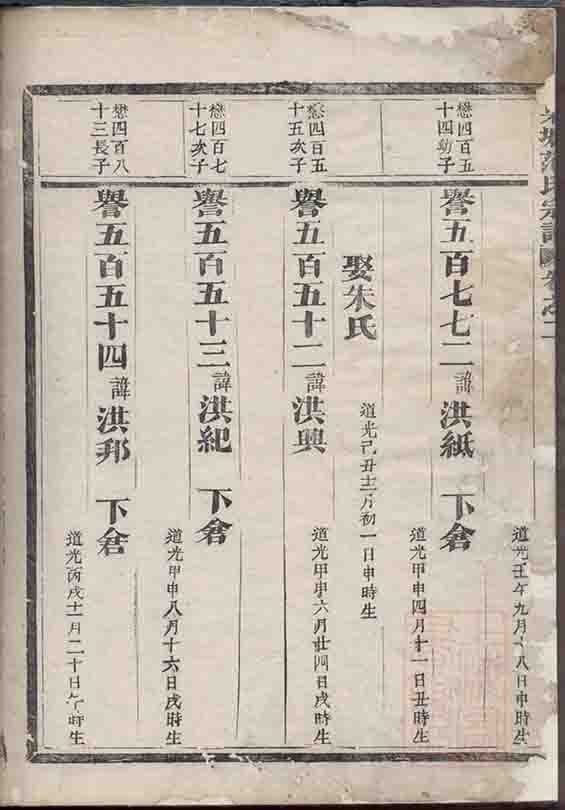 氏宗譜
卷之二
道光壬午九月十八日申時生
懋四百五
十四幼子
譽五百七七二 諱洪紙 下倉
道光甲申四月十一日丑時生
娶朱氏 道光己丑十二月初一日申時生
懋四百五
十五次子
譽五百五十二 諱洪興
道光甲申六月廿四日戌時生
懋四百七
十七次子
譽五百五十三 諱洪紀 下倉
道光甲申八月十六日戌時生
懋四百八
十三長子
譽五百五十四 諱洪邦 下倉
道光丙戌十一月二十日午時生